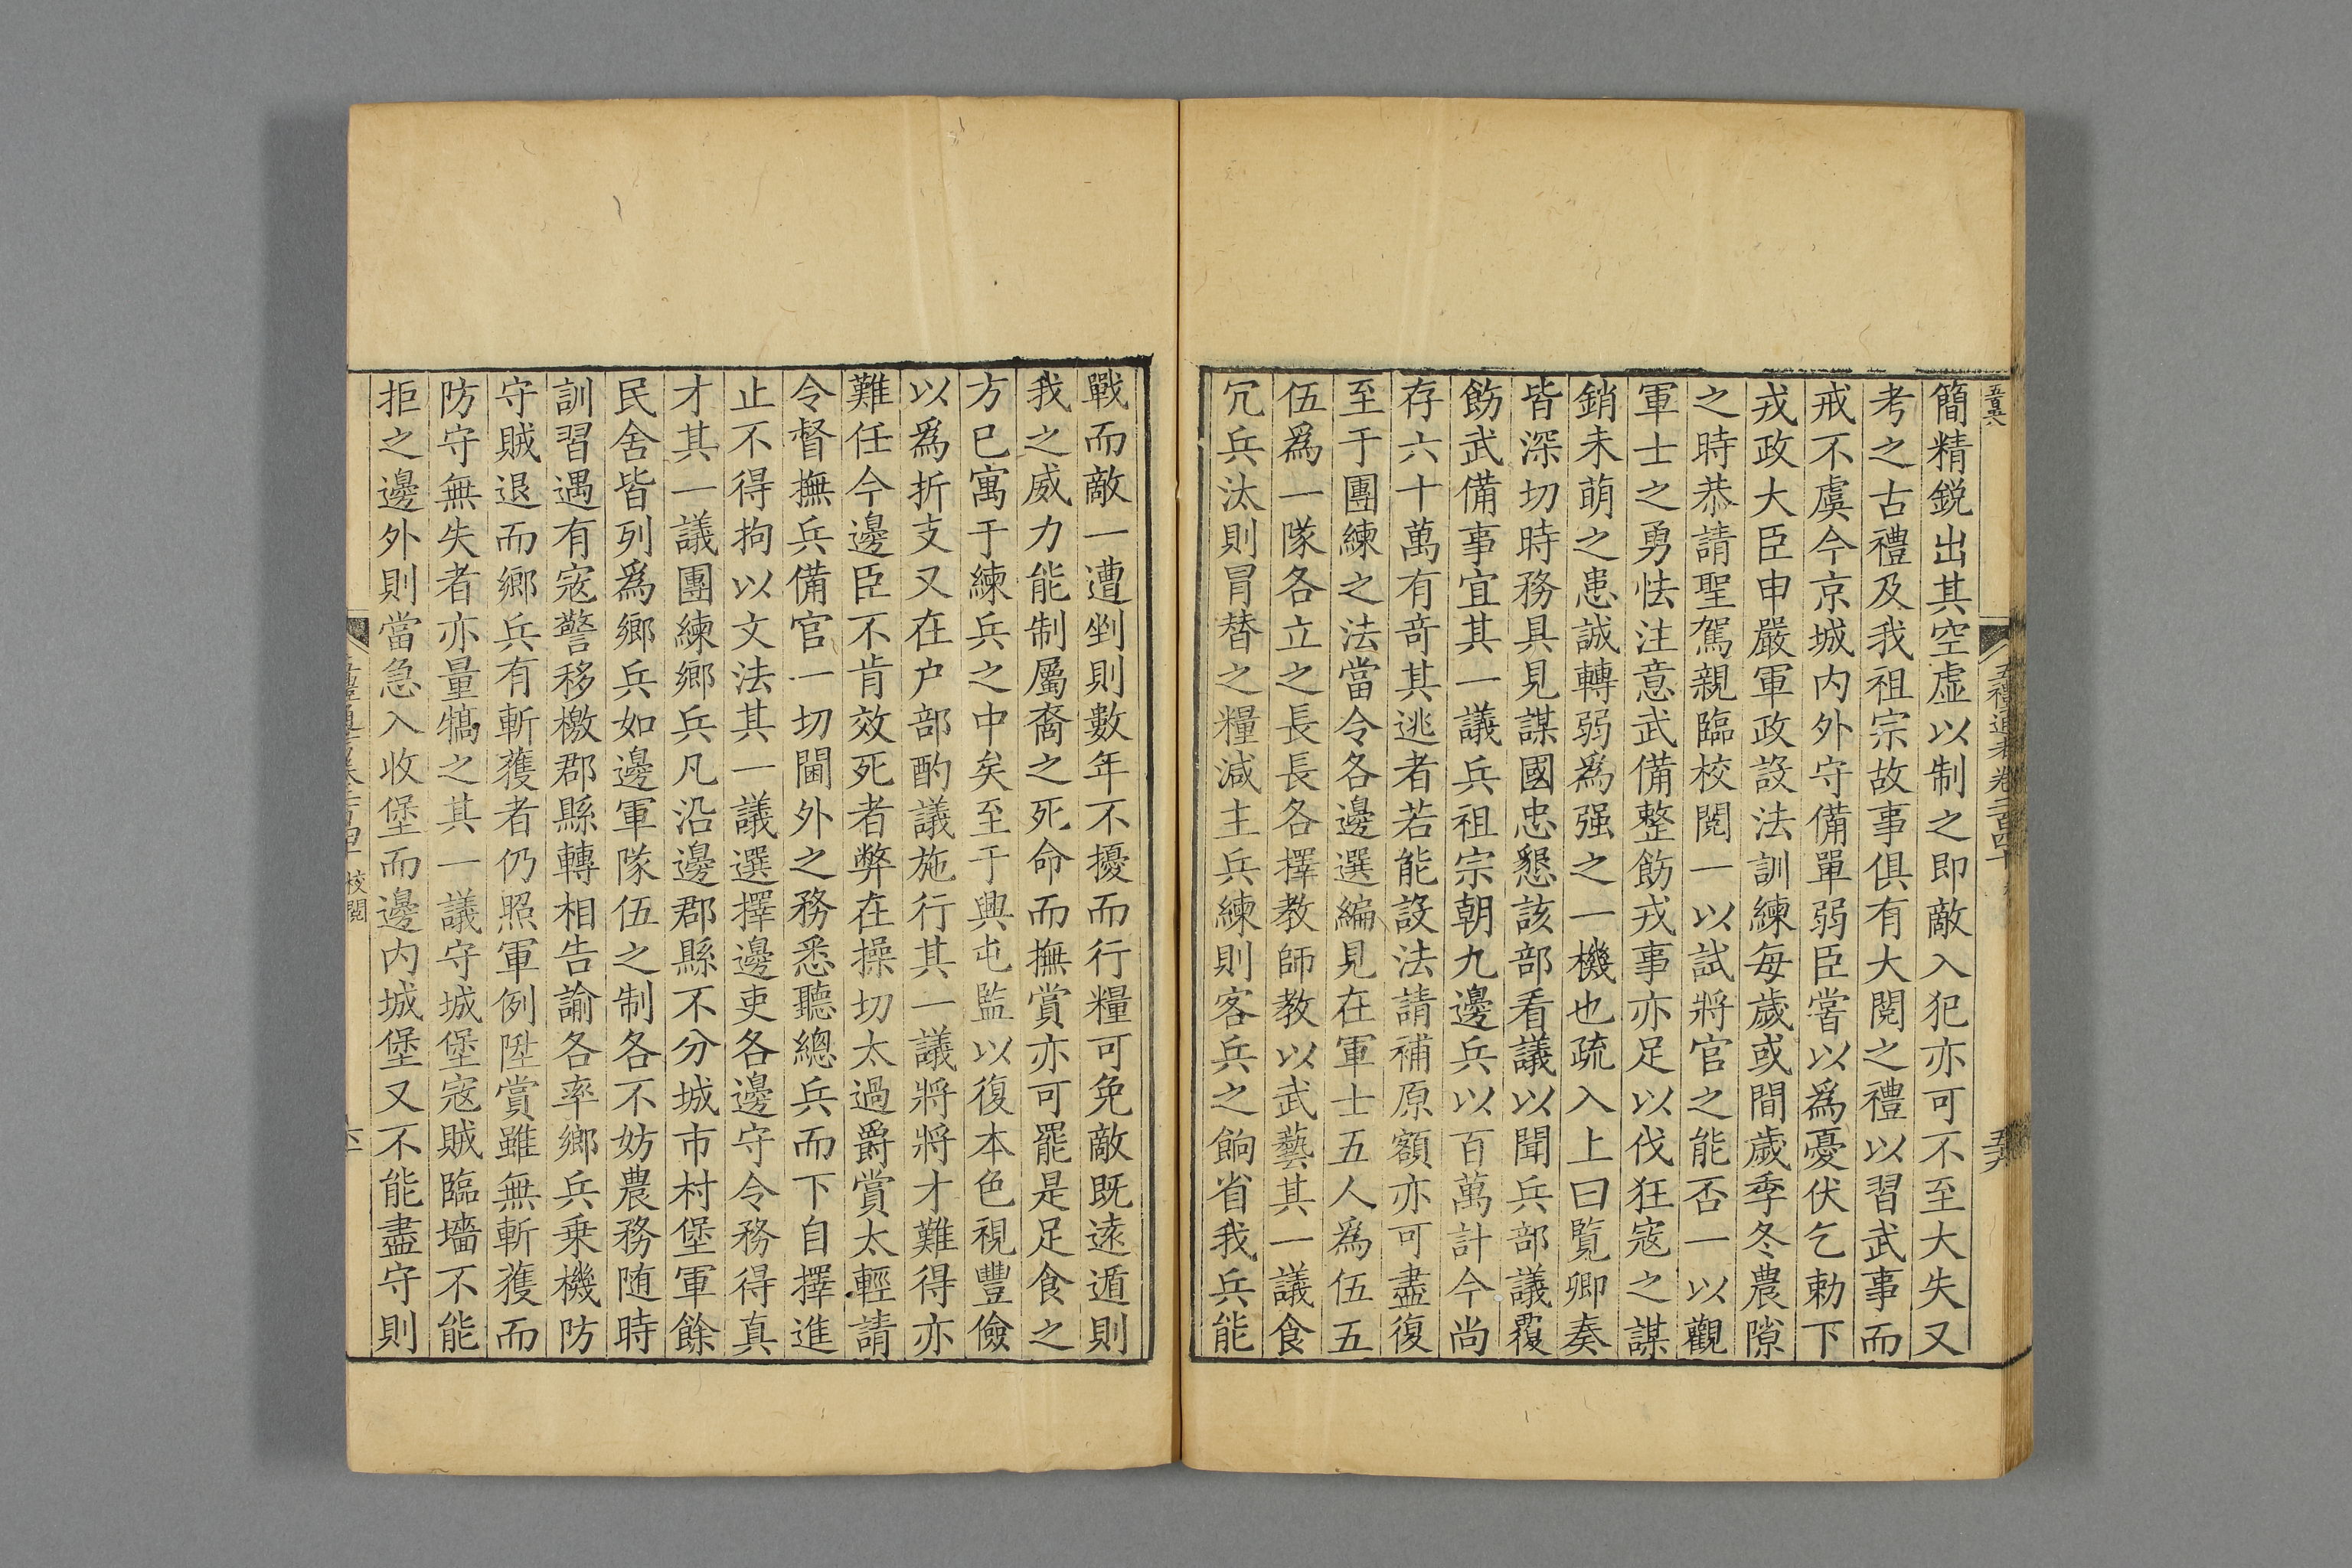 簡精鋭出其空虛以制之即敵入犯亦可不至大失又
考之古禮及我祖宗故事俱有大閱之禮以習武事而
戒不虞今京城内外守備單弱臣嘗以爲憂伏乞勅下
戎政大臣申嚴軍政設法訓練每歲或間歲季冬農隙
之時恭請聖駕親臨校閱一以試將官之能否一以觀
軍士之勇怯注意武備整飭戎事亦足以伐狂寇之謀
銷未萌之患誠轉弱爲强之一機也疏入上曰覧卿奏
皆深切時務具見謀國忠懇該部看議以聞兵部議覆
飭武備事宜其一議兵祖宗朝九邊兵以百萬計今尚
存六十萬有奇其逃者若能設法請補原額亦可盡復
至于團練之法當令各邊選編見在軍士五人爲伍五
伍爲一隊各立之長長各擇教師教以武藝其一議食
冗兵汰則冒替之糧減主兵練則客兵之餉省我兵能
戰而敵一遭剉則數年不擾而行糧可免敵既遠遁則
我之威力能制屬裔之死命而撫賞亦可罷是足食之
方已寓于練兵之中矣至于興屯監以復本色視豐儉
以爲折支又在户部酌議施行其一議將將才難得亦
難任今邊臣不肯效死者弊在操切太過爵賞太輕請
令督撫兵備官一切閫外之務悉聽總兵而下自擇進
止不得拘以文法其一議選擇邊吏各邊守令務得真
才其一議團練鄉兵凡沿邊郡縣不分城市村堡軍餘
民舍皆列爲鄉兵如邊軍隊伍之制各不妨農務随時
訓習遇有寇警移檄郡縣轉相告諭各率鄉兵乗機防
守賊退而鄉兵有斬獲者仍照軍例陞賞雖無斬獲而
防守無失者亦量犒之其一議守城堡寇賊臨墻不能
拒之邊外則當急入收堡而邊内城堡又不能盡守則
校閱